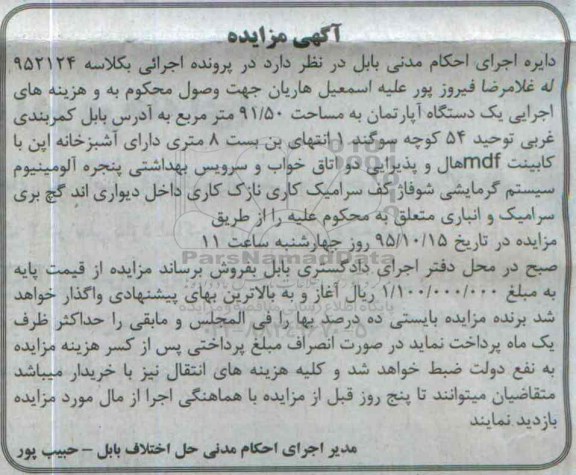 آگهی مزایده
دایره اجرای احکام مدنی بابل در نظر دارد در پرونده اجرائی بکلاسه ۹۵۲۱۲۴
له غلامرضا فیروز پور علیه اسمعیل هاریان جهت وصول محکوم به و هزینه های
اجرایی یک دستگاه آپارتمان به مساحت ۹۱/۵۰ متر مربع به آدرس بابل کمربندی
غربی توحید ۵۴ کوچه سوگند ۱ انتهای بن بست ۸ متری دارای آشپزخانه اپن با
کابینت mdfهال و پذیرایی دو اتاق خواب و سرویس بهداشتی پنجره آلومینیوم
سیستم گرمایشی شوفاژ کف سرامیک کاری نازک کاری داخل دیواری اند گچ بری
سرامیک و انباری متعلق به محکوم علیه را از طریق
مزایده در تاریخ ۹۵/۱۰/۱۵ روز چهارشنبه ساعت ۱۱
صبح در محل دفتر اجرای دادگستری بابل بفروش برساند مزایده از قیمت پایه
به مبلغ ۱/۱۰۰/۰۰۰/۰۰۰ ریال آغاز و به بالاترین بهای پیشنهادی واگذار خواهد
شد برنده مزایده بایستی ده درصد بها را فی المجلس و مابقی را حداکثر ظرف
یک ماه پرداخت نماید در صورت انصراف مبلغ پرداختی پس از کسر هزینه مزایده
به نفع دولت ضبط خواهد شد و کلیه هزینه های انتقال نیز با خریدار میباشد
متقاضیان میتوانند تا پنج روز قبل از مزایده با هماهنگی اجرا از مال مورد مزایده
بازدید نمایند
مدیر اجرای احکام مدنی حل اختلاف بابل – حبیب پور
ParsNamadData